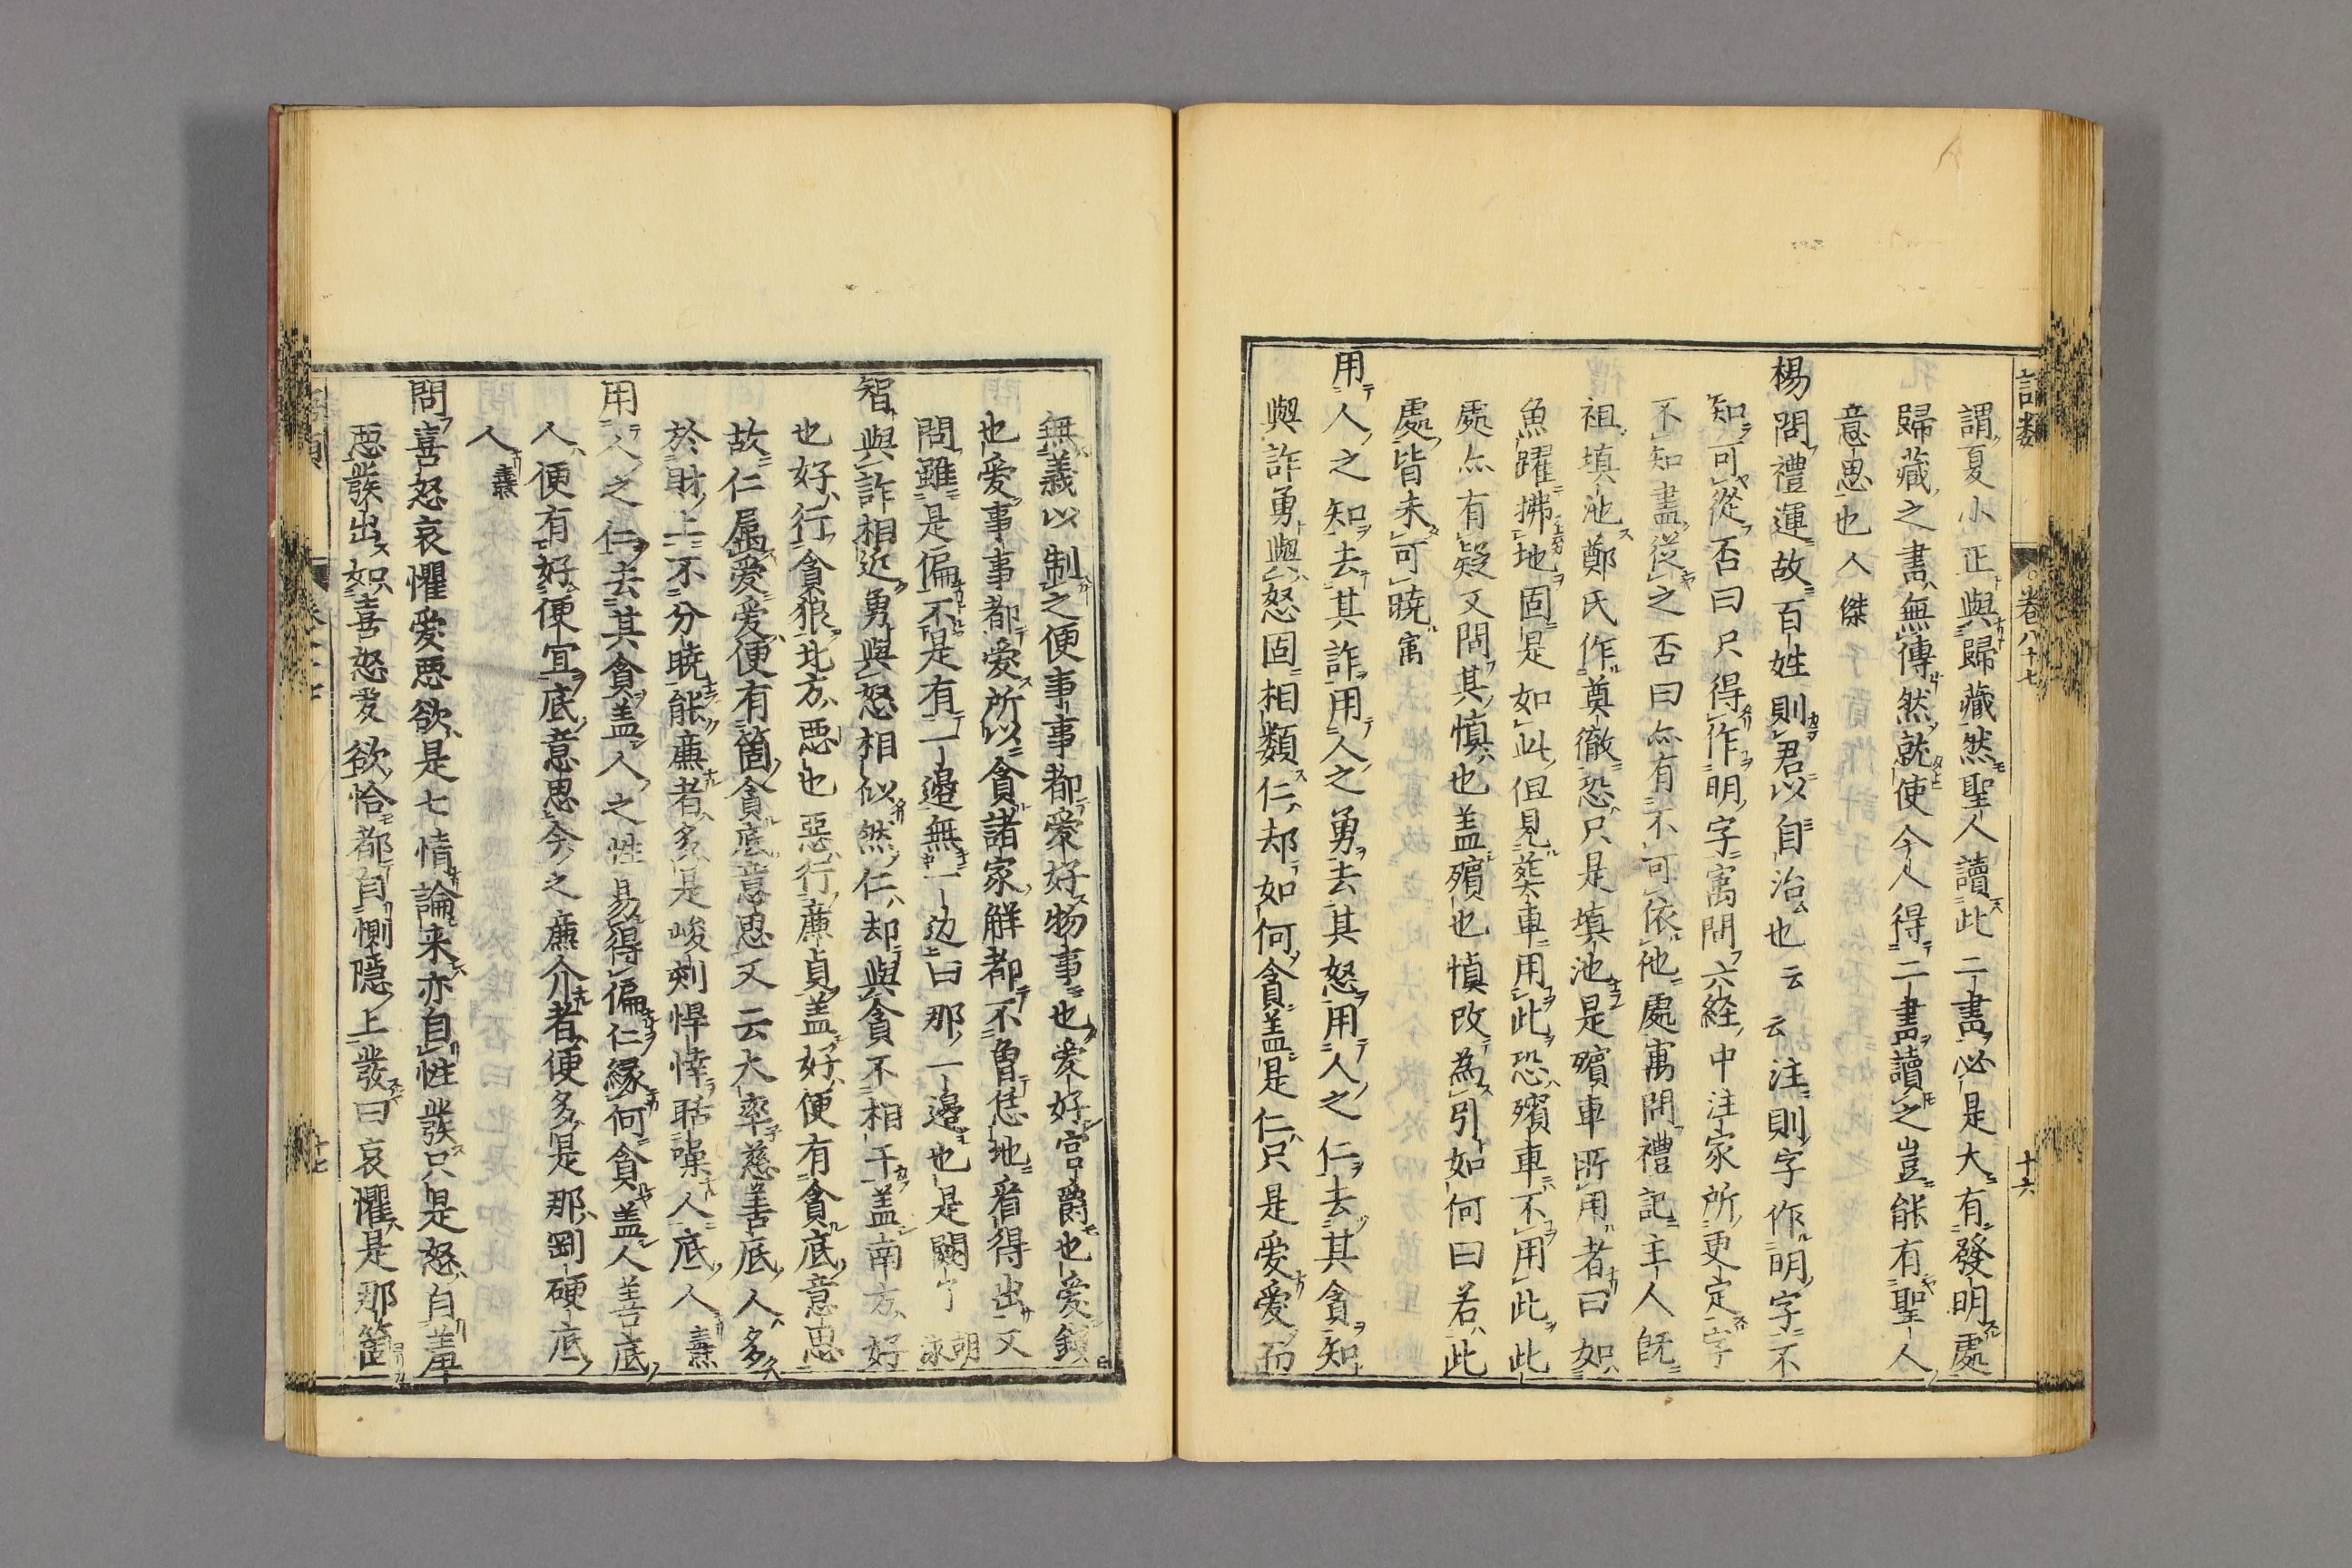 語類
卷八十七
十六
謂夏小正與歸藏然聖人讀此二書必是大有發明處
歸藏之書無傳然就使今人得二書讀之豈能有聖人
意思也人傑
楊問禮運故百姓則君以自治也云云注則字作明字不
知可從否曰只得作明字㝢問六経中注家所更定字
不知盡從之否曰亦有不可依他處㝢問禮記主人既
祖填池鄭氏作奠徹恐只是填池是殯車所用者曰如
魚躍拂地固是如此但見葬車用此恐殯車不用此此
處亦有疑又問其慎也盖殯也慎改為引如何曰若此
處皆未可曉㝢
用人之知去其詐用人之勇去其怒用人之仁去其貪知
與詐勇與怒固相類仁却如何貪盖是仁只是愛愛而
無義以制之便事事都愛好物事也愛好官爵也愛錢
也愛事事都愛所以貪諸家解都不曾恁地看得出又
問雖是偏不是有一邉無一边曰那一邉也是闕了胡泳
智與詐相近勇與怒相似然仁却與貪不相干盖南方好
也好行貪狼北方惡也惡行廉貞盖好便有貪底意思
故仁屬愛愛便有箇貪底意思又云大率慈善底人多
於財上不分曉能廉者多是峻刻悍悻聒噪人底人燾
用人之仁去其貪盖人之性易得偏仁緣何貪盖人善底
人便有好便宜底意思今之廉介者便多是那剛硬底
人燾
問喜怒哀懼愛惡欲是七情論来亦自性發只是怒自羞
惡發出如喜怒愛欲恰都自惻隱上發曰哀懼是那箇
十七